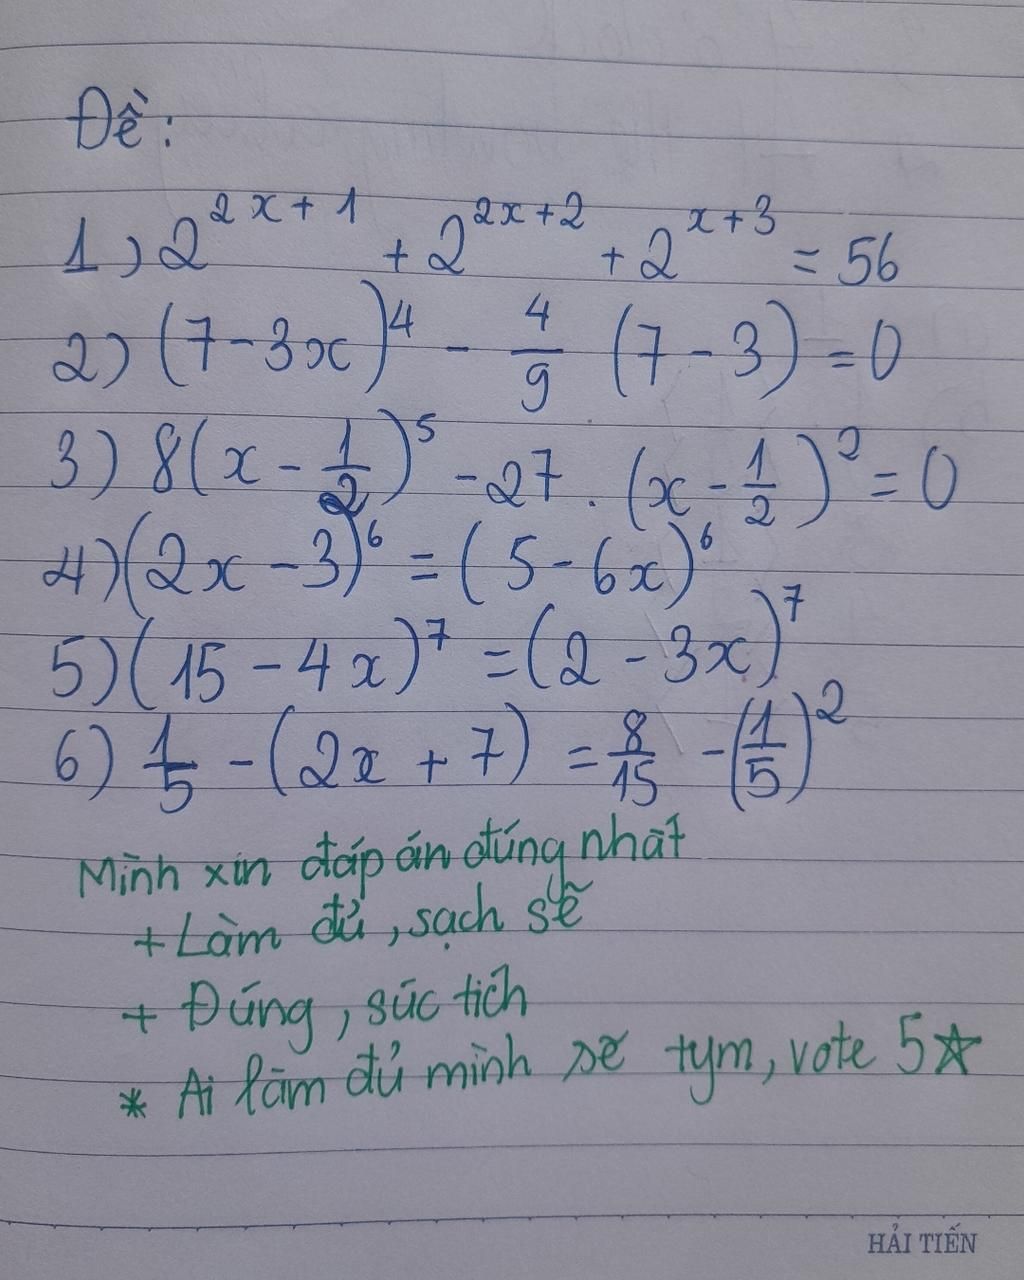 Đề:
1) 2^{2x+1} + 2^{2x+2} + 2^{x+3} = 56
2) (7-3x)^4 - \frac{4}{9} (7-3) = 0
3) 8(x - \frac{1}{2})^5 - 27 . (x - \frac{1}{2})^2 = 0
4) (2x - 3)^6 = (5 - 6x)^6
5) (15 - 4x)^7 = (2 - 3x)^7
6) \frac{1}{5} - (2x + 7) = \frac{8}{15} - (\frac{1}{5})^2
Mình xin đáp án đúng nhất
+ Làm đủ, sạch sẽ
+ Đúng, súc tích
* Ai làm đủ mình sẽ tym, vote 5☆
HẢI TIẾN